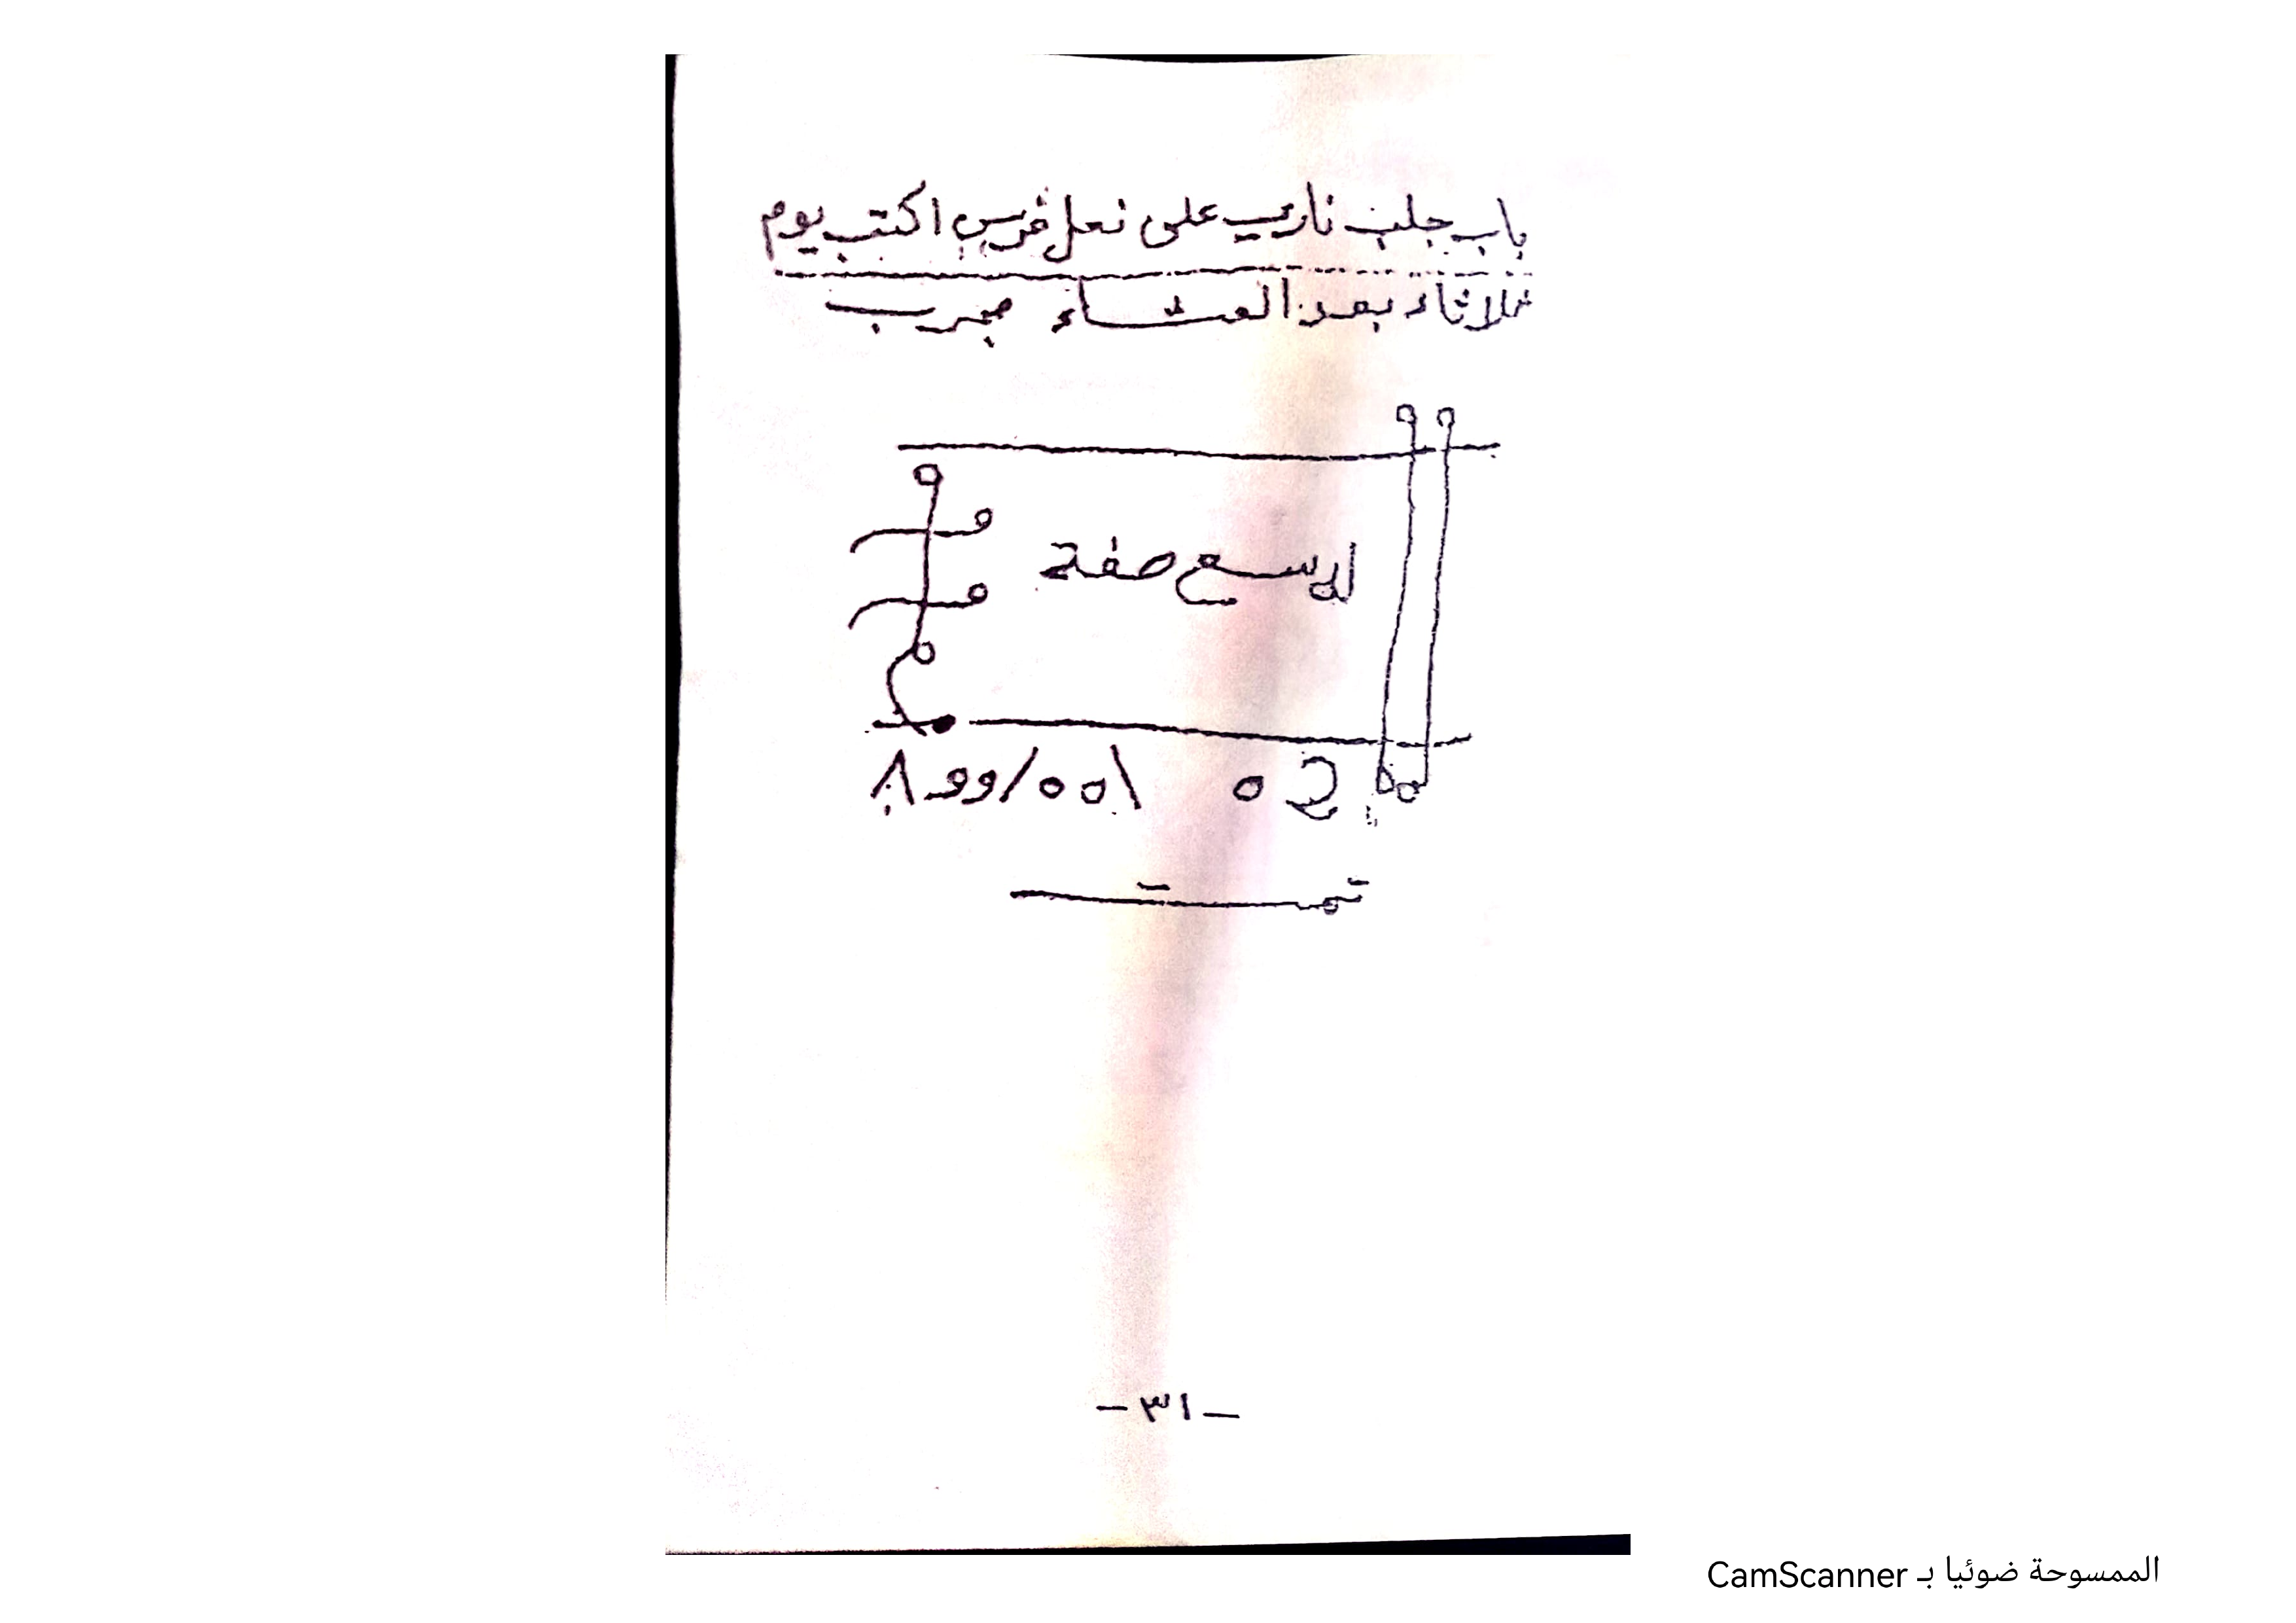 باب جلب ناري على نعل فرس اكتب يوم
ثلاثاء بعد العشاء مجرب
صفة
تمت
- ٣١ -
الممسوحة ضوئيا بـ CamScanner